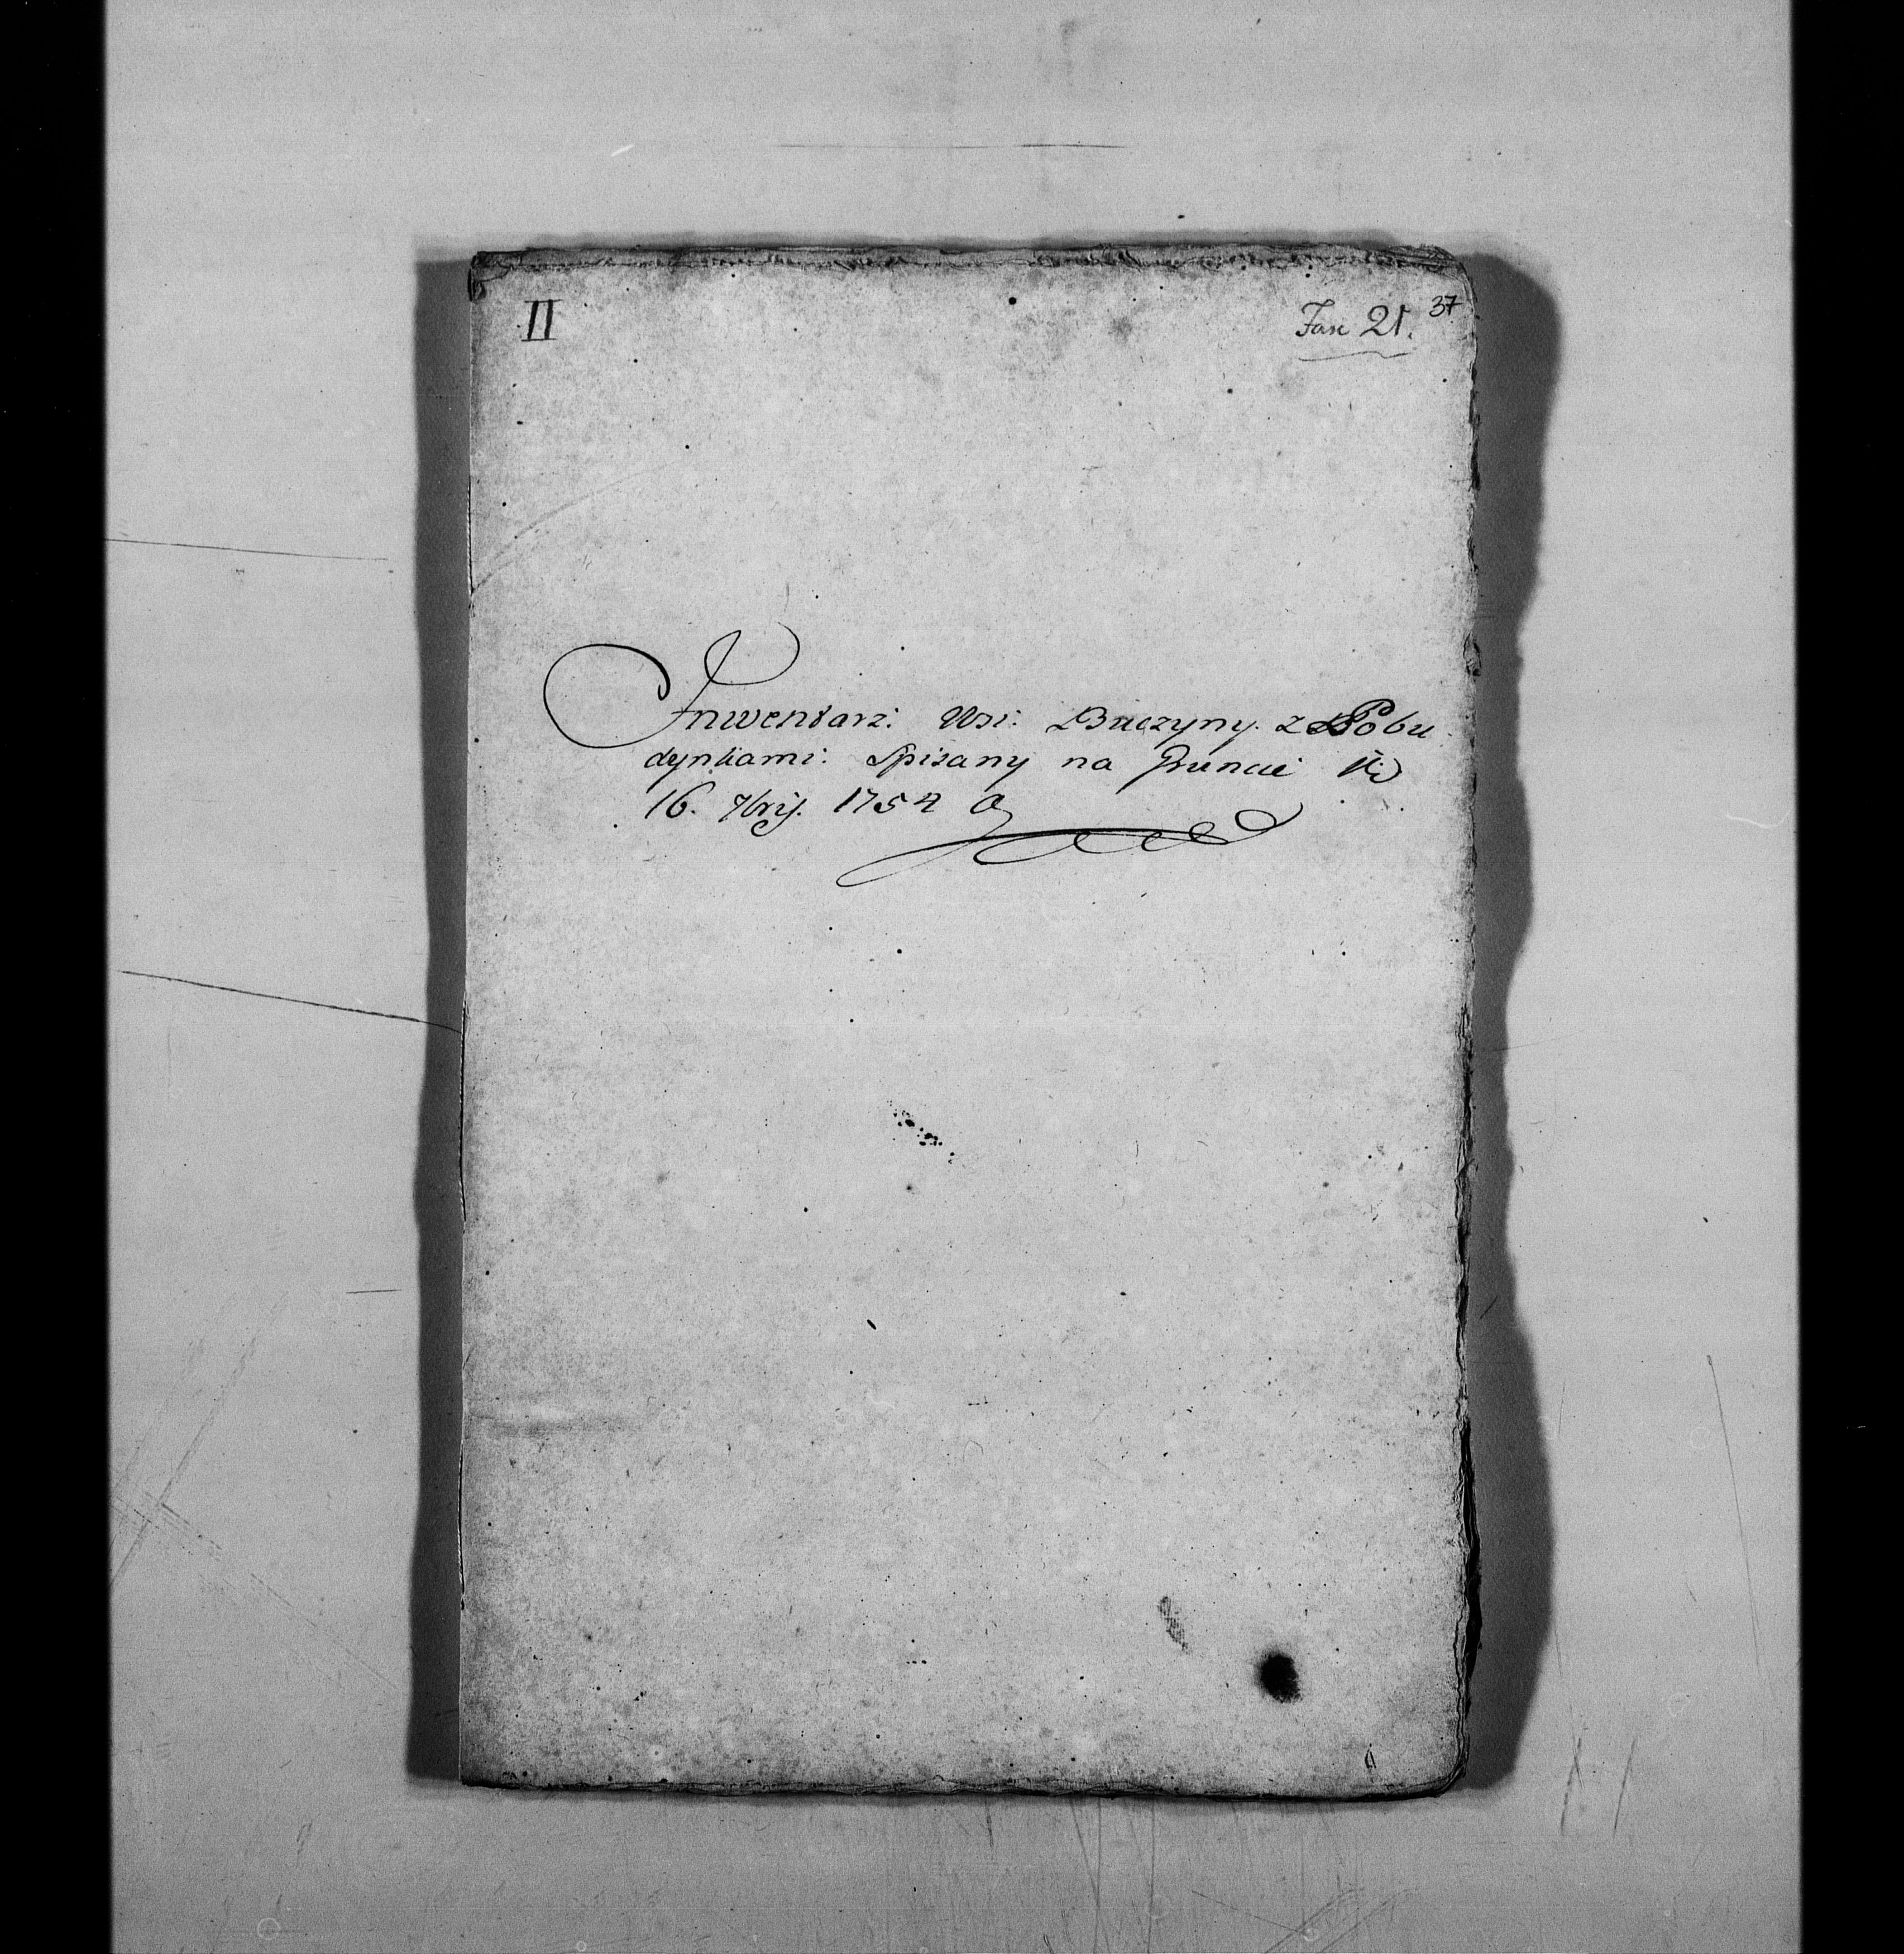 II
Fasc 21.
37
Inwentarz: Wsi: Buczyny. z Pobu
dynkami: Spisany na Gruncie
16. 7bris. 1754 a